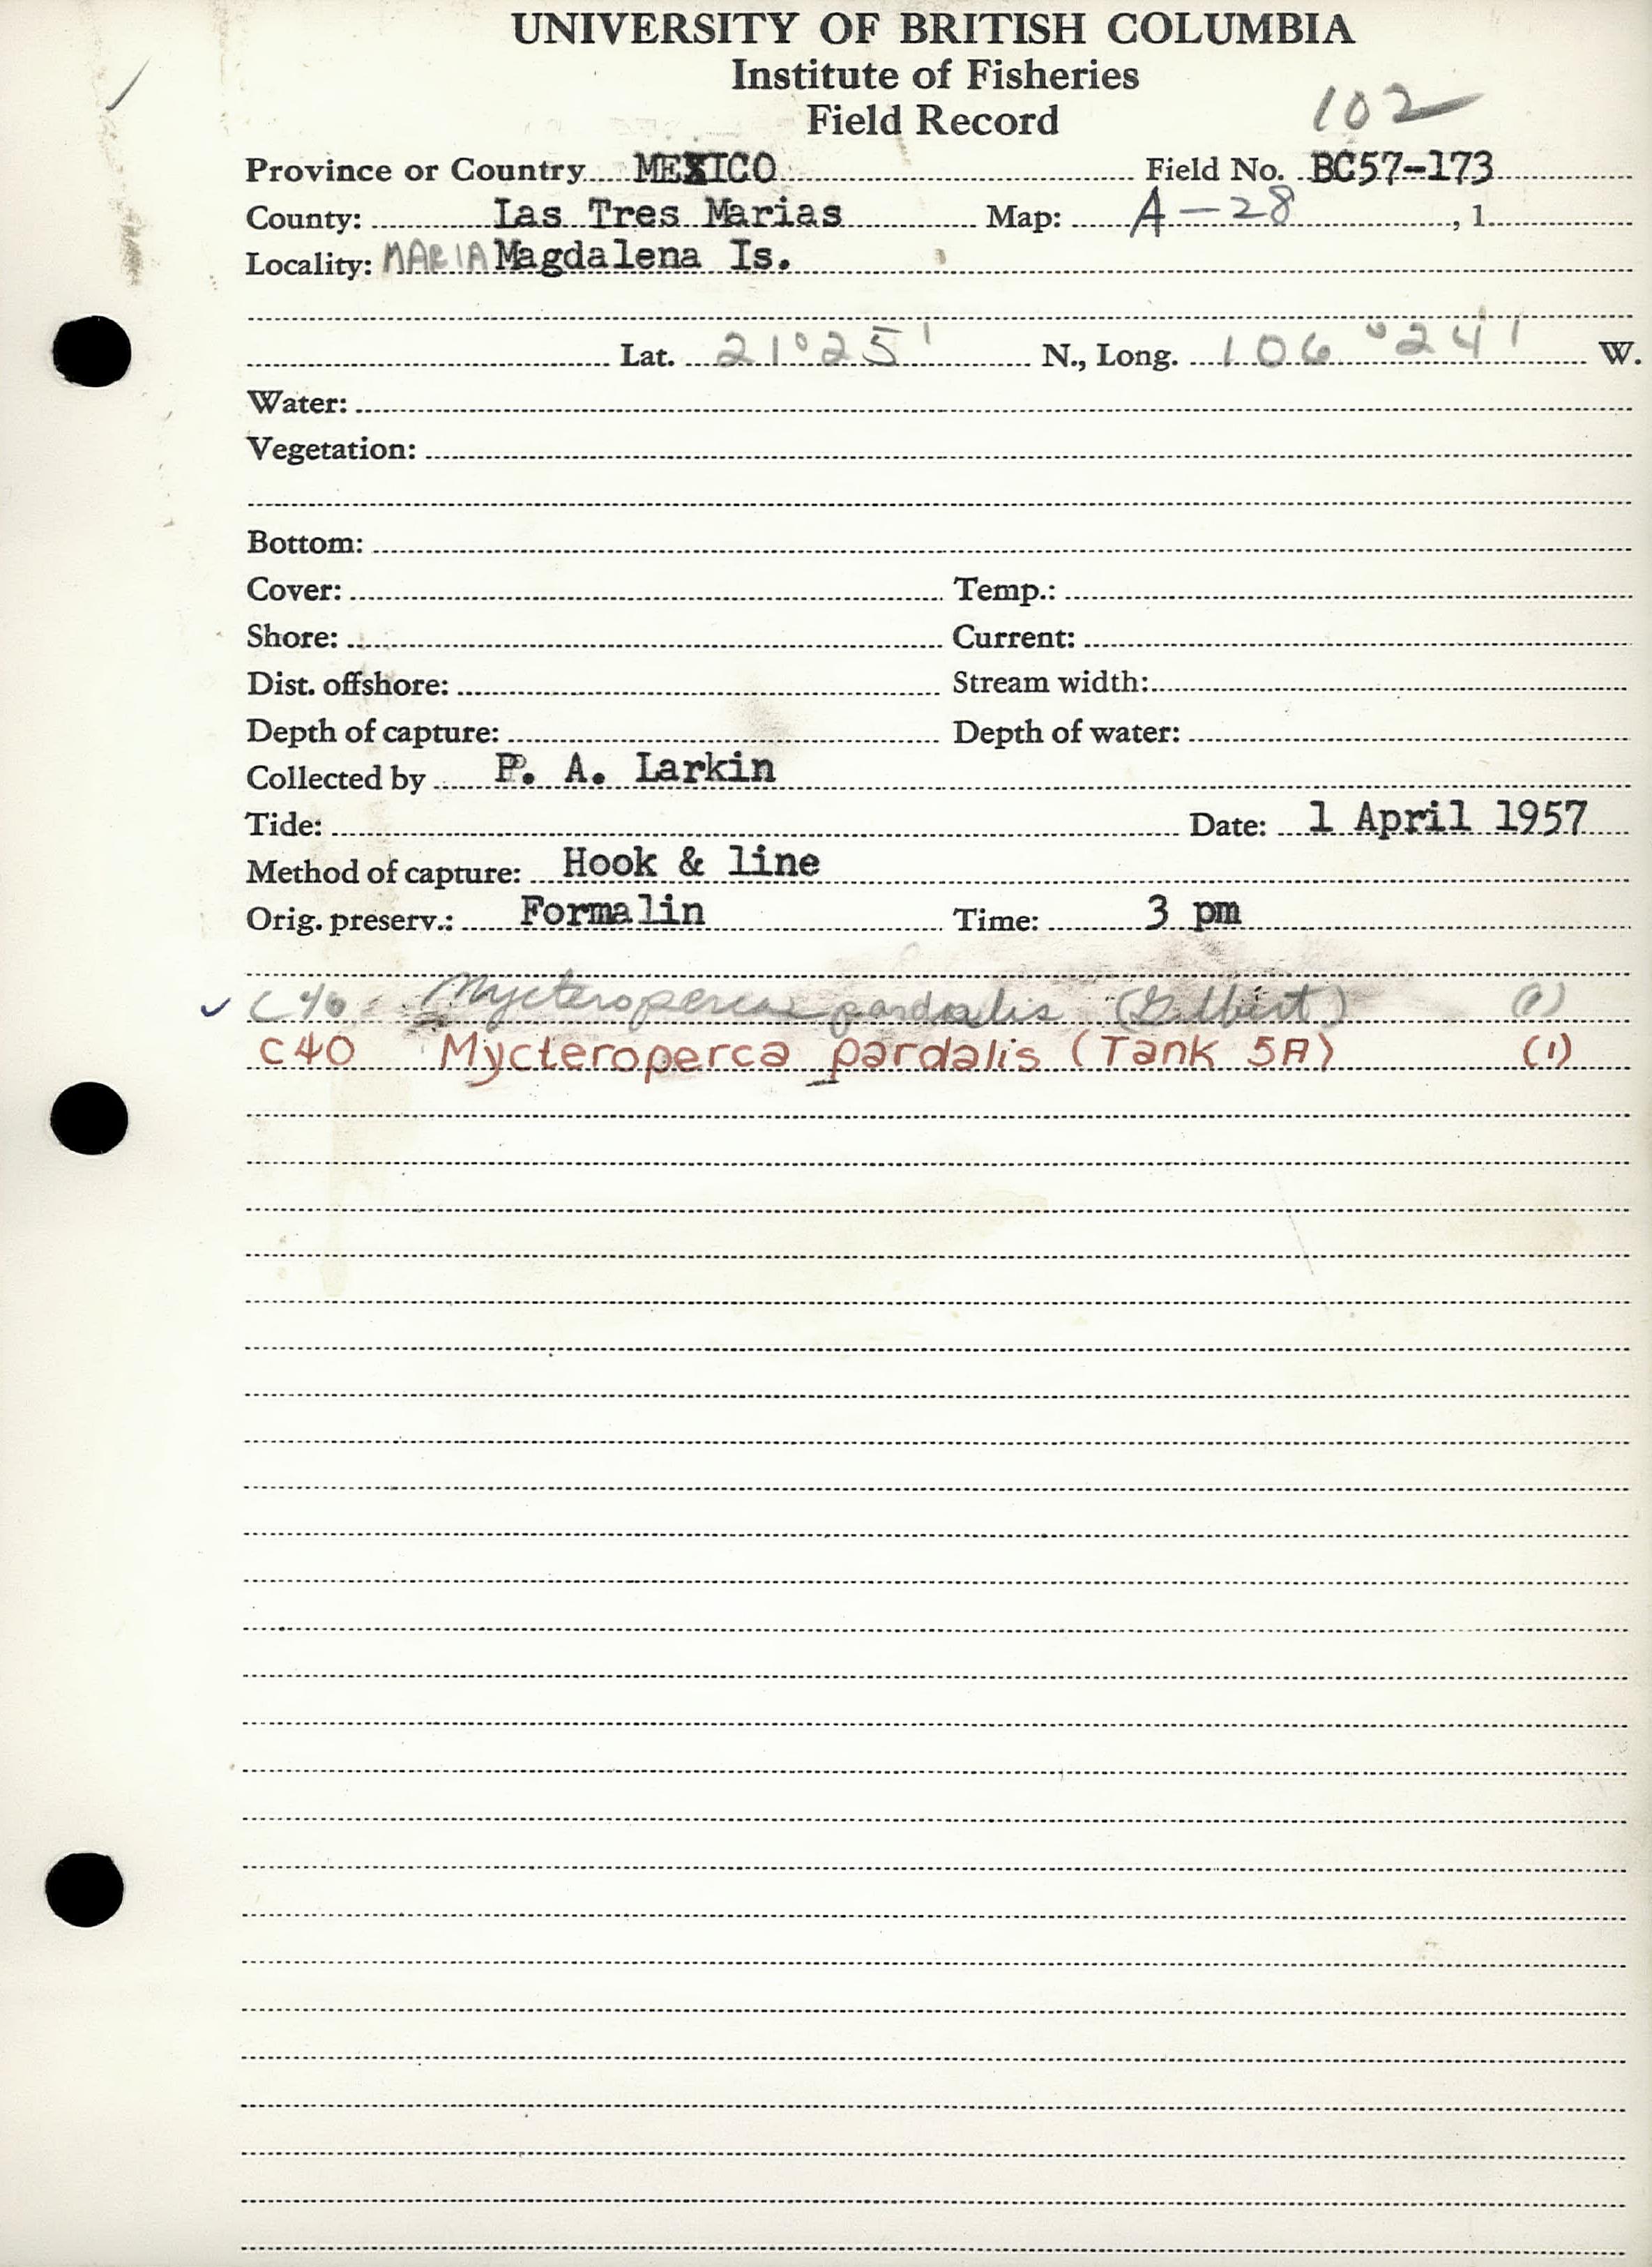 UNIVERSITY OF BRITISH COLUMBIA
Institute of Fisheries
Field Record
102
Province or Country MEXICO Field No. BC57-173
County: Las Tres Marias Map: A-28, 1
Locality: MARIA Magdalena Is.
Lat. 21°25' N., Long. 106°24' W.
Water:
Vegetation:
Bottom:
Cover: Temp.:
Shore: Current:
Dist. offshore: Stream width:
Depth of capture: Depth of water:
Collected by P. A. Larkin
Tide: Date: 1 April 1957
Method of capture: Hook & line
Orig. preserv.: Formalin Time: 3 pm
✓ C40 Mycteroperca pardalis (Gilbert) (1)
C40 Mycteroperca pardalis (Tank 5A) (1)